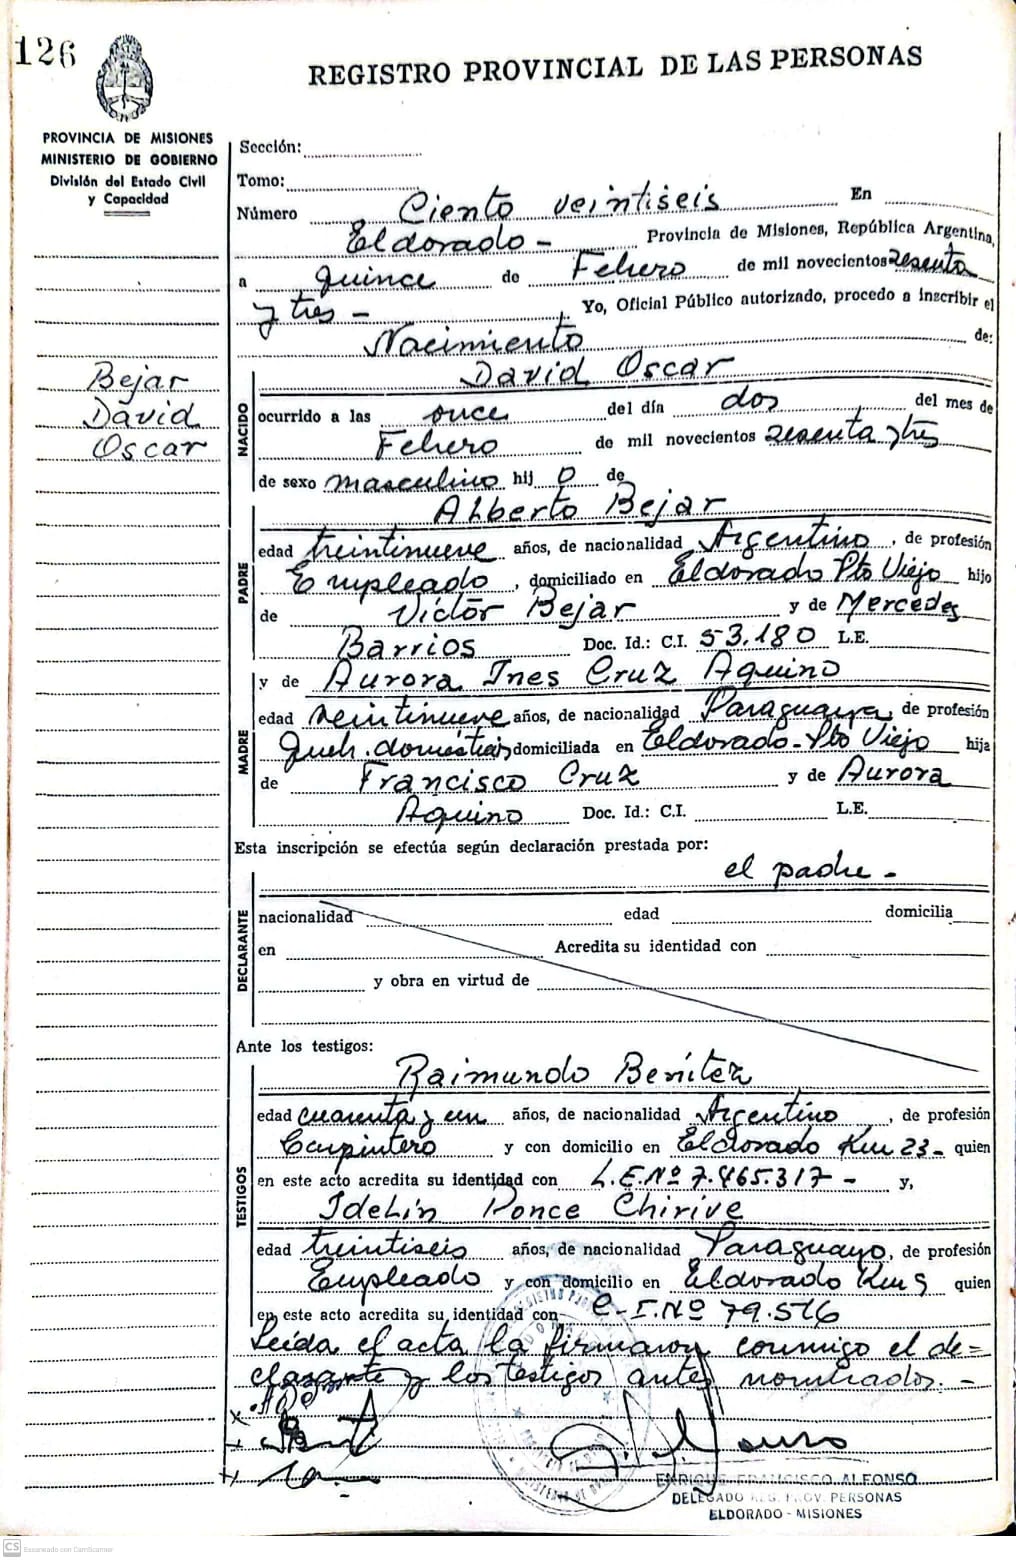 126
REGISTRO PROVINCIAL DE LAS PERSONAS
PROVINCIA DE MISIONES
MINISTERIO DE GOBIERNO
División del Estado Civil
y Capacidad
Sección:
Tomo:
Número Ciento veintiseis En
Eldorado - Provincia de Misiones, República Argentina,
a quince de Febrero de mil novecientos sesenta
y tres - Yo, Oficial Público autorizado, procedo a inscribir el
Nacimiento de:
Bejar
David
Oscar
NACIDO
David Oscar
ocurrido a las once del día dos del mes de
Febrero de mil novecientos sesenta y tres
de sexo masculino hij o de
PADRE
Alberto Bejar
edad treintinueve años, de nacionalidad Argentino, de profesión
Empleado, domiciliado en Eldorado Pto Viejo hijo
de Victor Bejar y de Mercedes
Barrios Doc. Id.: C.I. 53.180 L.E.
y de Aurora Ines Cruz Aquino
MADRE
edad veintinueve años, de nacionalidad Paraguaya, de profesión
Queh. domésticos domiciliada en Eldorado - Pto Viejo hija
de Francisco Cruz y de Aurora
Aquino Doc. Id.: C.I. L.E.
Esta inscripción se efectúa según declaración prestada por:
el padre -
DECLARANTE
nacionalidad edad domicilia
en Acredita su identidad con
y obra en virtud de
Ante los testigos:
TESTIGOS
Raimundo Benítez
edad cuarenta y un años, de nacionalidad Argentino, de profesión
Carpintero y con domicilio en Eldorado Km 23 - quien
en este acto acredita su identidad con L.E.Nº 7.465.317 - y,
Idelín Ponce Chirive
edad treintiseis años, de nacionalidad Paraguayo, de profesión
Empleado y con domicilio en Eldorado Km 9 quien
en este acto acredita su identidad con C.I.Nº 79.516
Leída el acta la firmaron conmigo el de=
clarante y los testigos antes nombrados. -
ENRIQUE FRANCISCO ALFONSO
DELEGADO REG. PROV. PERSONAS
ELDORADO - MISIONES
CS Escaneado con CamScanner